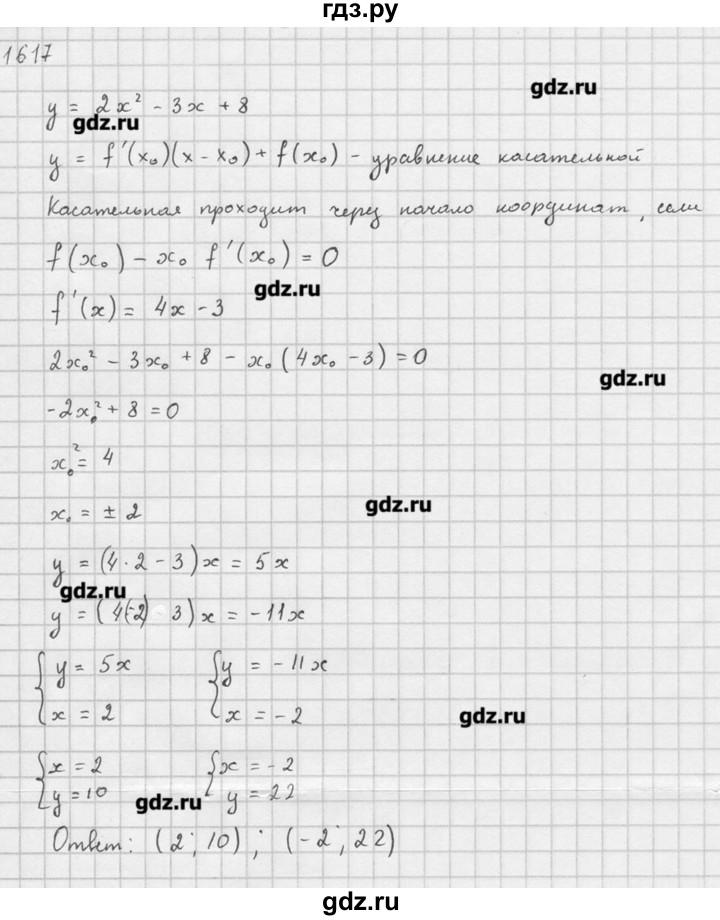 гдз.ру
1617
gdz.ru
y = 2x² - 3x + 8
gdz.ru
y = f'(x₀)(x - x₀) + f(x₀) - уравнение касательной
Касательная проходит через начало координат, если
f(x₀) - x₀ f'(x₀) = 0
gdz.ru
f'(x) = 4x - 3
2x₀² - 3x₀ + 8 - x₀(4x₀ - 3) = 0
gdz.ru
-2x₀² + 8 = 0
x₀² = 4
gdz.ru
x₀ = ± 2
y = (4·2 - 3)x = 5x
gdz.ru
y = (4(-2) 3)x = -11x
{ y = 5x { y = -11x
{ x = 2 { x = -2
gdz.ru
{ x = 2 { x = -2
{ y = 10 { y = 22
gdz.ru
Ответ: (2; 10); (-2; 22)
gdz.ru